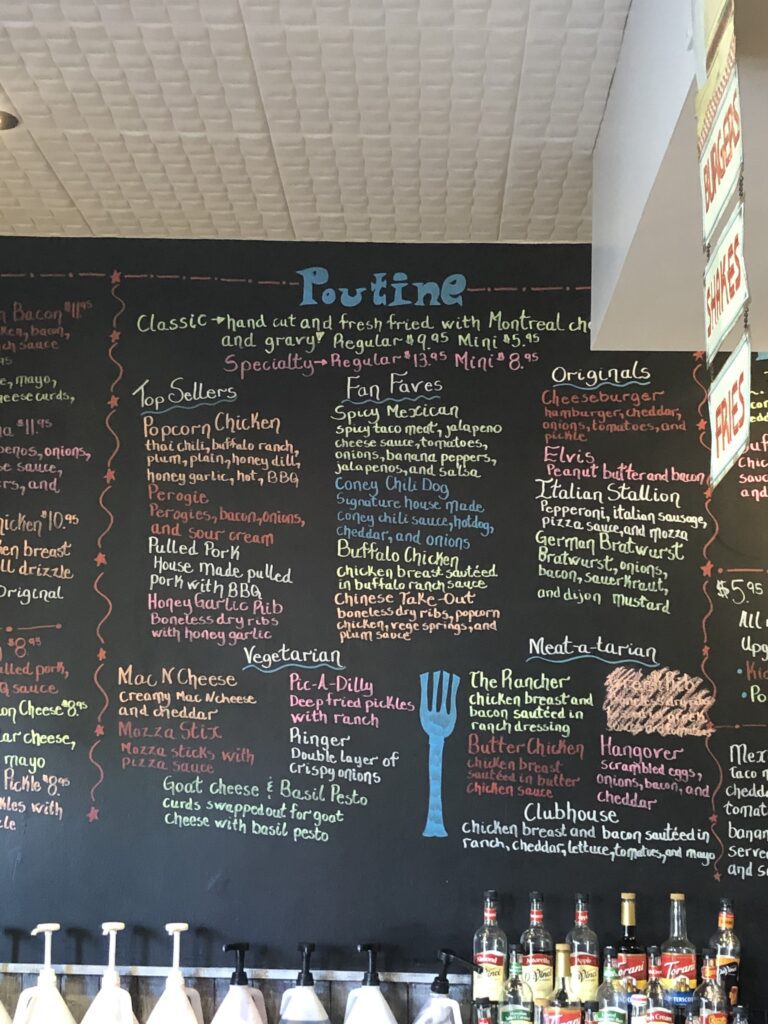 Poutine
Classic → hand cut and fresh fried with Montreal
and gravy Regular $9.95 Mini $5.95
Specialty → Regular $13.95 Mini $8.95
Top Sellers
Popcorn Chicken
thai chili, buffalo ranch,
plum, plain, honey dill,
honey garlic, hot, BBQ
Perogie
Perogies, bacon, onions,
and sour cream
Pulled Pork
House made pulled
pork with BBQ
Honey Garlic Rib
Boneless dry ribs
with honey garlic
Fan Faves
Spicy Mexican
spicy taco meat, jalapeno
cheese sauce, tomatoes,
onions, banana peppers,
jalapenos, and salsa
Coney Chili Dog
Signature house made
coney chili sauce, hotdog,
cheddar, and onions
Buffalo Chicken
chicken breast sautéed
in buffalo ranch sauce
Chinese Take-Out
boneless dry ribs, popcorn
chicken, vege springs, and
plum sauce
Originals
Cheeseburger
hamburger, cheddar,
onions, tomatoes, and
pickle
Elvis
Peanut butter and bacon
Italian Stallion
Pepperoni, italian sausage,
pizza sauce, and mozza
German Bratwurst
Bratwurst, onions,
bacon, sauerkraut,
and dijon mustard
Vegetarian
Mac N Cheese
Creamy Mac N cheese
and cheddar
Mozza Stix
Mozza sticks with
pizza sauce
Pic-A-Dilly
Deep fried pickles
with ranch
Ringer
Double layer of
crispy onions
Goat cheese & Basil Pesto
curds swapped out for goat
cheese with basil pesto
Meat-a-tarian
The Rancher
chicken breast and
bacon sautéed in
ranch dressing
Butter Chicken
chicken breast
sautéed in butter
chicken sauce
Hangover
scrambled eggs,
onions, bacon, and
cheddar
Clubhouse
chicken breast and bacon sautéed in
ranch, cheddar, lettuce, tomatoes, and mayo
Bacon $11.95
bacon,
sauce
mayo,
curds,
$11.95
onions,
sauce,
and
$10.95
breast
drizzle
Original
$8.95
pulled pork,
sauce
Cheese $8.95
cheese,
mayo
Pickle $8.95
with
BURGERS
SHAKES
FRIES
$5.95
All
and
Almond
Amaretto
DaVinci
DaVinci
Torani
Torani